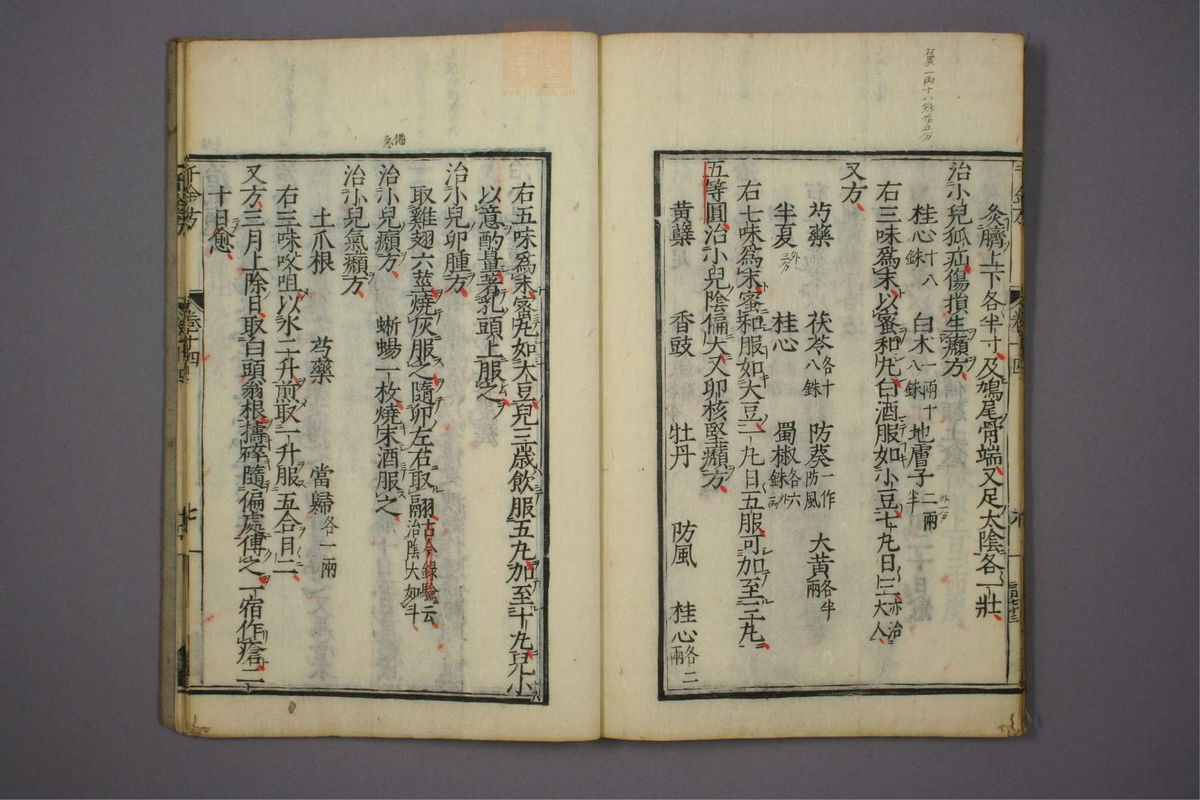 灸臍上下各半寸及鳩尾骨端又足太陰各一壯
治小兒狐疝傷損生㿗方
桂心十八銖 白朮一兩十八銖 地膚子二兩半
右三味爲末以蜜和丸白酒服如小豆七丸日三亦治大人
又方
芍藥 茯苓各十八銖 防葵一作防風 大黃各半兩
半夏 桂心 蜀椒各六銖
右七味爲末蜜和服如大豆一丸日五服可加至三丸
五等圓治小兒陰偏大又卵核堅㿗方
黃蘗 香豉 牡丹 防風 桂心各二兩
右五味爲末蜜丸如大豆兒三歲飲服五丸加至十丸兒小
以意酌量著乳頭上服之
治小兒卵腫方
取雞翅六莖燒灰服之隨卵左右取翮古今錄驗云治陰大如斗
治小兒㿗方 蜥蜴一枚燒末酒服之
治小兒氣㿗方
土瓜根 芍藥 當歸各一兩
右三味㕮咀以水二升煎取一升服五合日二
又方三月上除日取白頭翁根擣碎隨偏處傅之一宿作瘡二
十日愈
千金方
卷十四